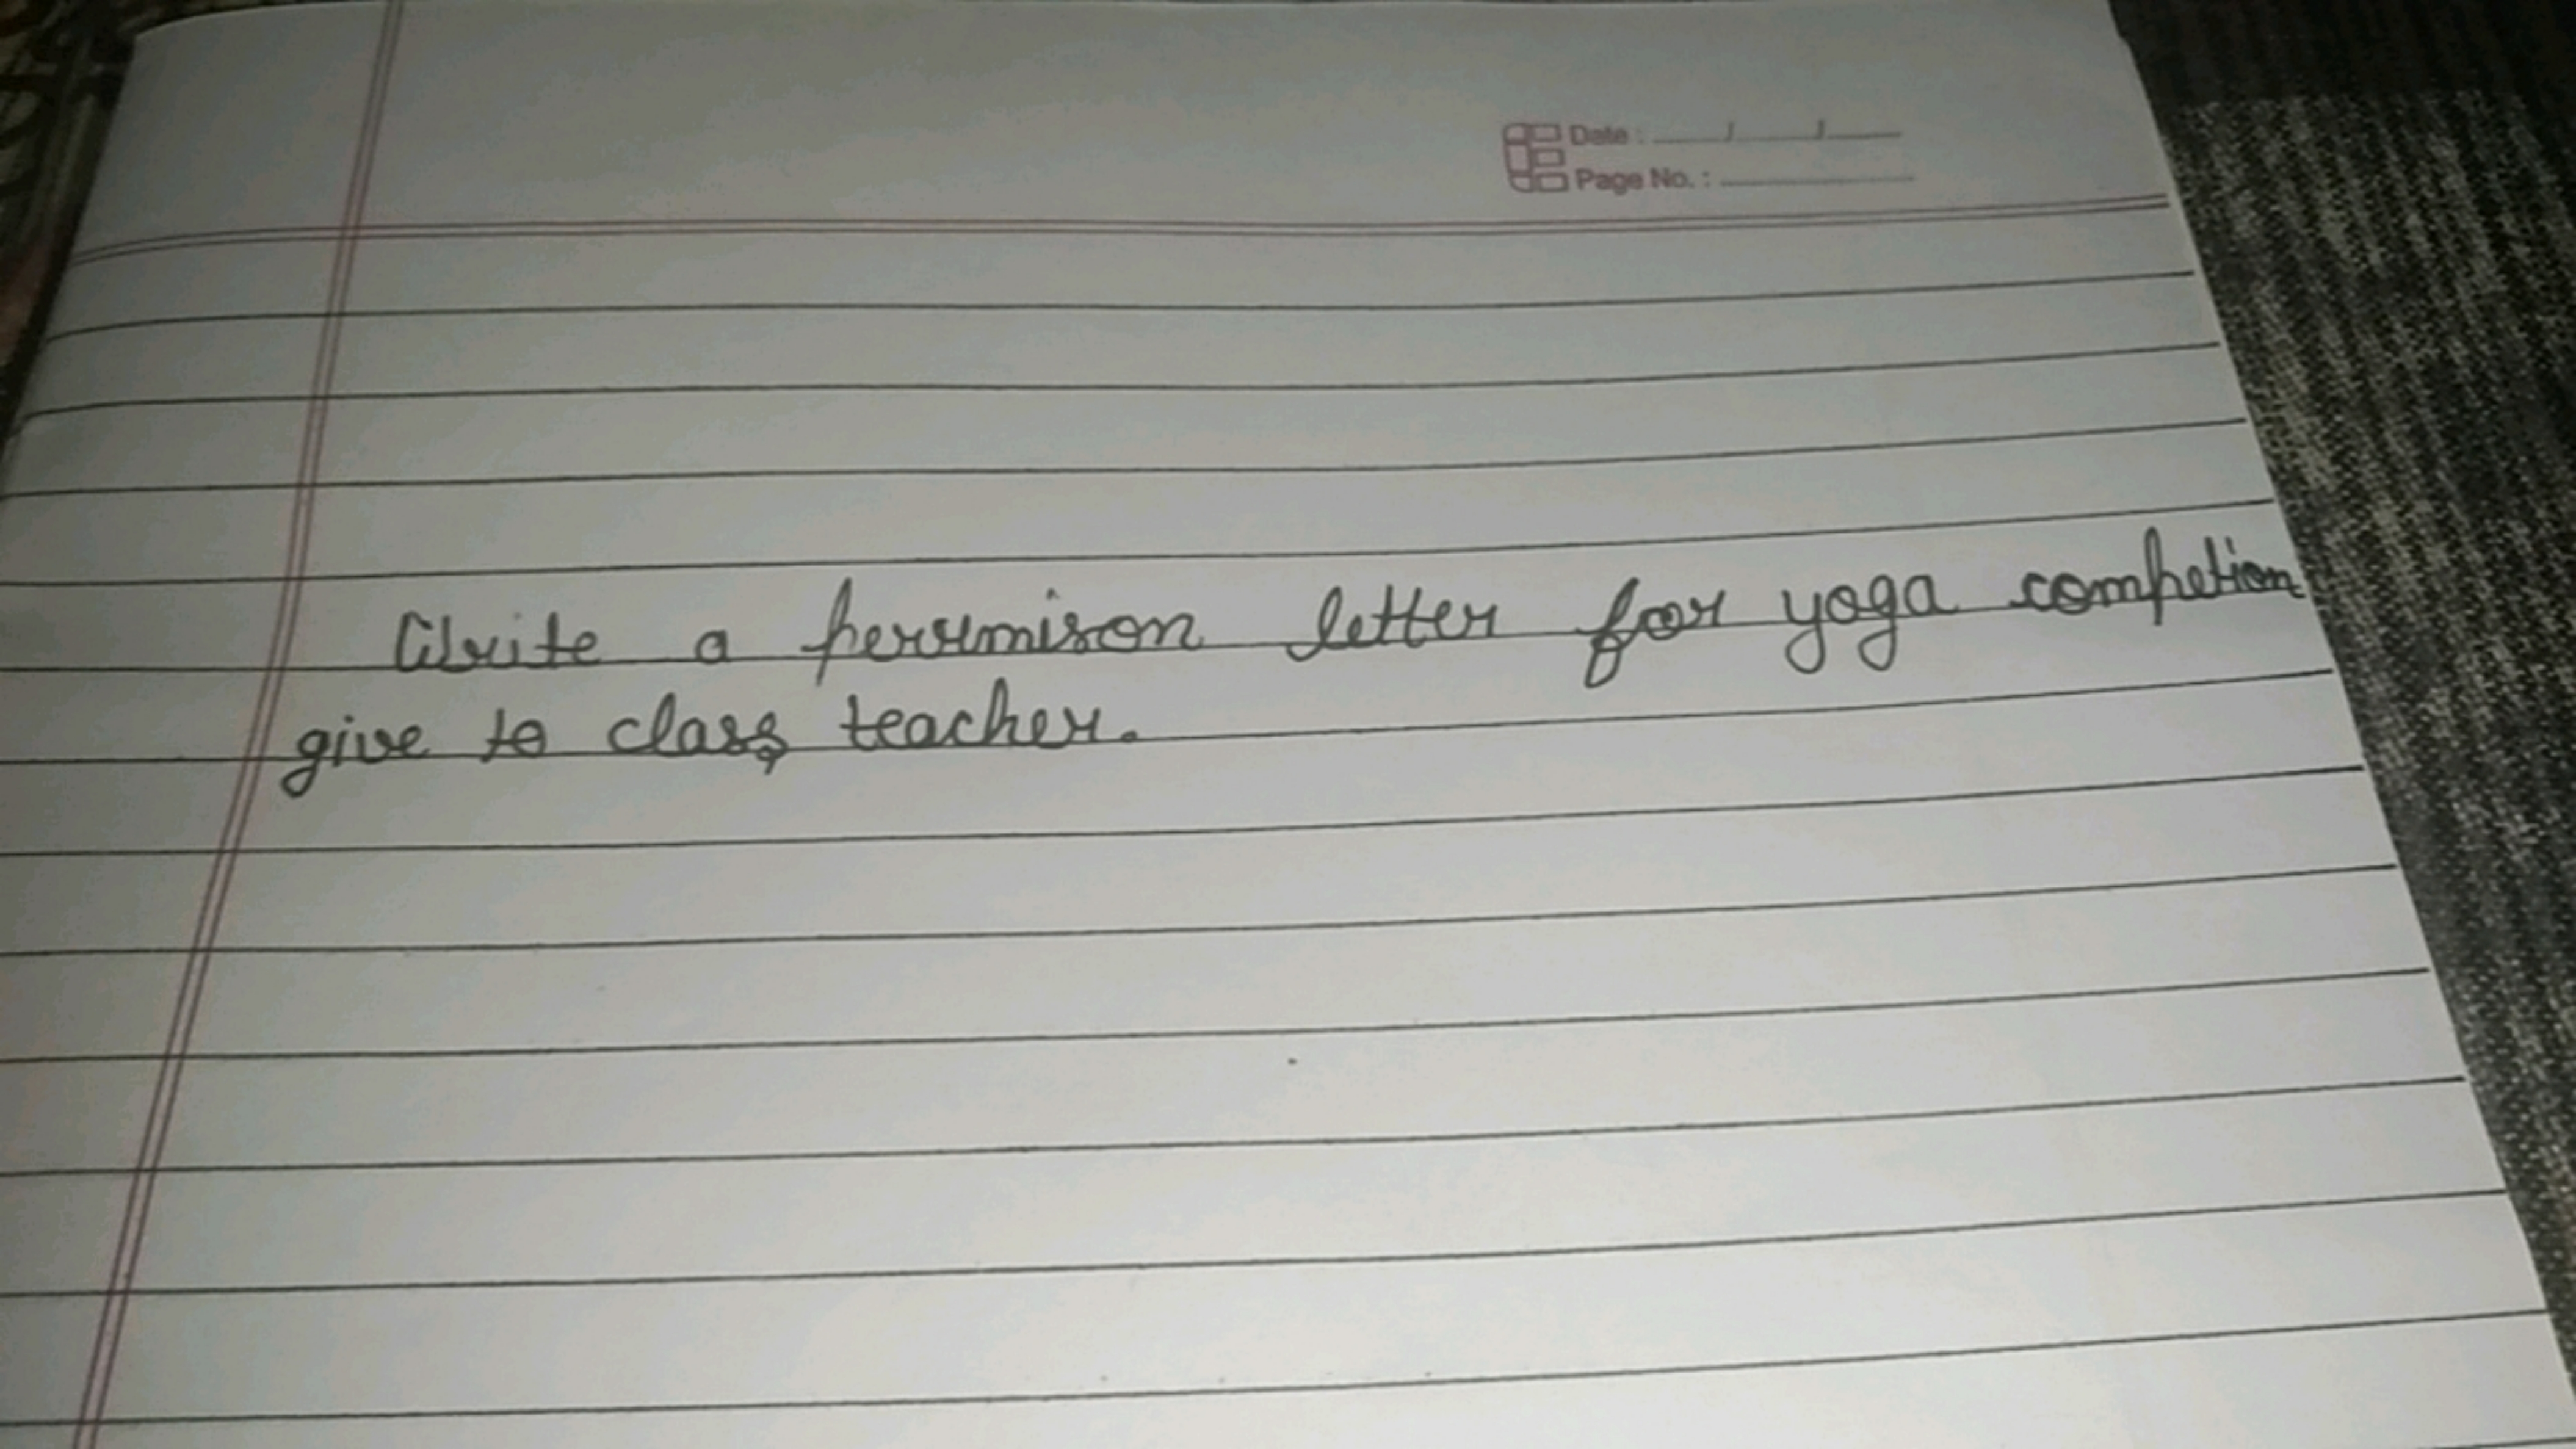 Date : / /
Page No. :
Write a perrmison letter for yoga competion
give to class teacher.